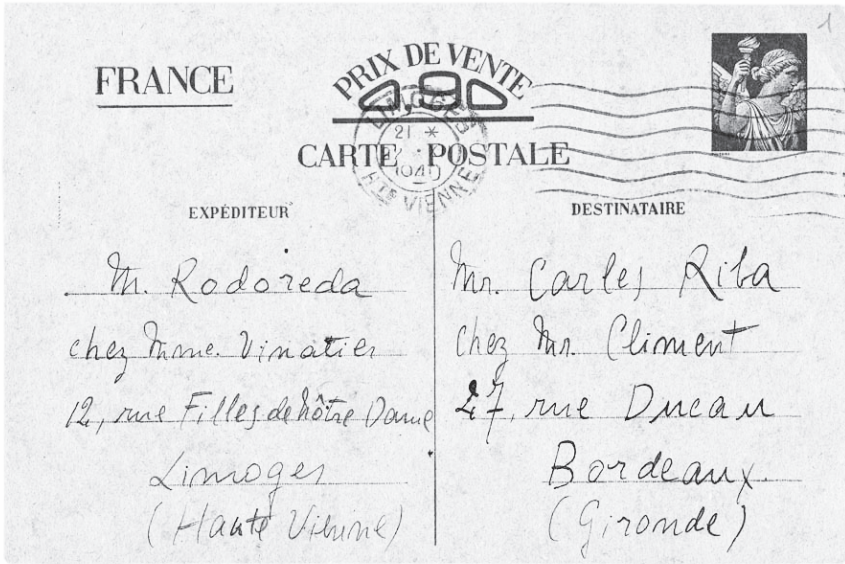 1
FRANCE
PRIX DE VENTE
0,90
CARTE POSTALE
21 *
1940
HTE VIENNE
EXPÉDITEUR
M. Rodoreda
chez Mme. Vinatier
12, rue Filles de Nôtre Dame
Limoges
(Haute Vienne)
DESTINATAIRE
Mr. Carles Riba
chez Mr. Climent
27, rue Ducau
Bordeaux.
(Gironde)